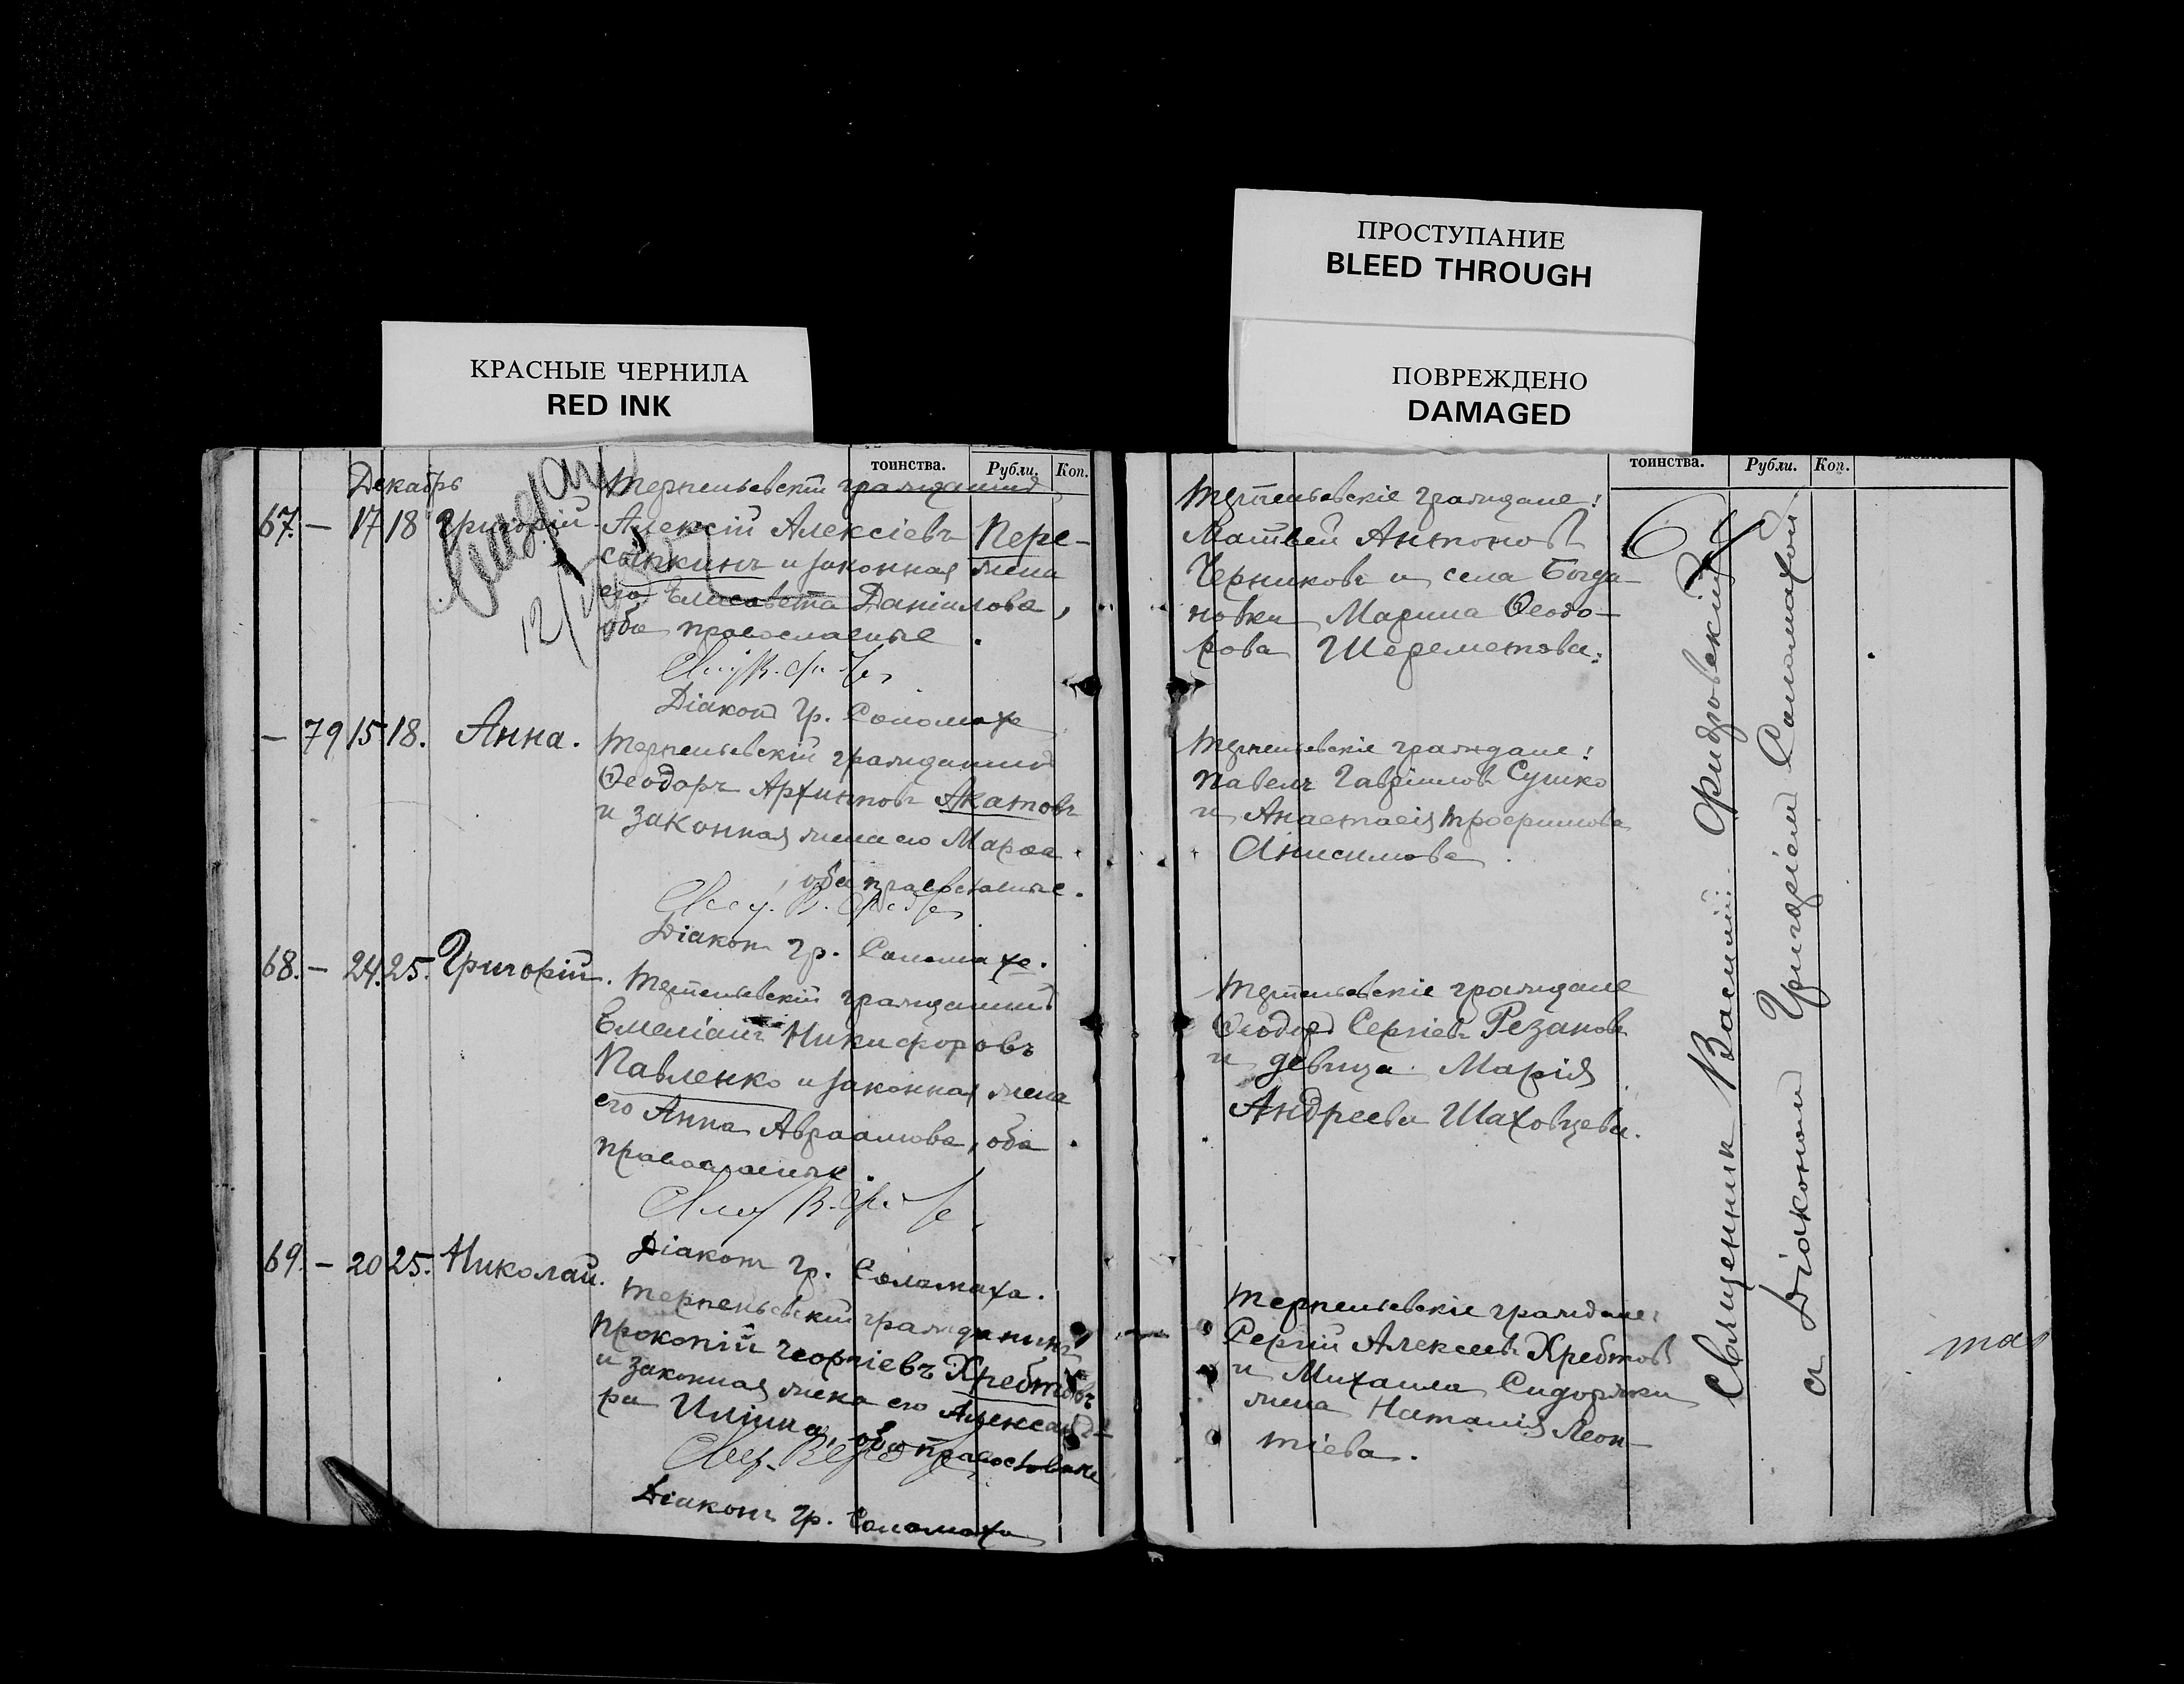 ПРОСТУПАНИЕ
BLEED THROUGH
ПОВРЕЖДЕНО
DAMAGED
КРАСНЫЕ ЧЕРНИЛА
RED INK
тоинства. Рубли. Коп.
Декабрь
67. – 17 18 Григорій
Терпеньевскій гражданинъ
Алексій Алексіевъ Пере-
сыпкинъ и законная жена
его Елисавета Даніилова,
оба православные.
Діаконъ Гр. Соломаха
– 79 15 18. Анна.
Терпеньевскій гражданинъ
Ѳеодоръ Архиповъ Акатовъ
и законная жена его Марѳа
, оба православные.
Діаконъ Гр. Соломаха.
68. – 24. 25. Григорій.
Терпеньевскій гражданинъ
Емеліанъ Никифоровъ
Павленко и законная жена
его Анна Авраамова, оба
православные.
Діаконъ Гр. Соломаха.
69. – 20 25. Николай.
Терпеньевскій гражданинъ
Прокопій Георгіевъ Хребтовъ
и законная жена его Александ-
ра Иліина, оба православные
Діаконъ Гр. Соломаха
тоинства. Рубли. Коп.
Терпеньевскіе граждане:
Матвей Антоновъ
Черниковъ и села Богда-
новки Марина Ѳеодо-
рова Шереметова.
Терпеньевскіе граждане:
Павелъ Гавріиловъ Сушко
и Анастасія Трофимова
Анисимова.
Терпеньевскіе граждане
Ѳеодоръ Сергіевъ Резановъ
и девица Марія
Андреева Шаховцева.
Терпеньевскіе граждане:
Сергій Алексеевъ Хребтовъ
и Михаила Сидоряки
жена Наталія Леон-
тіева.
Священникъ Василій
съ Діакономъ Григоріемъ Соломахой